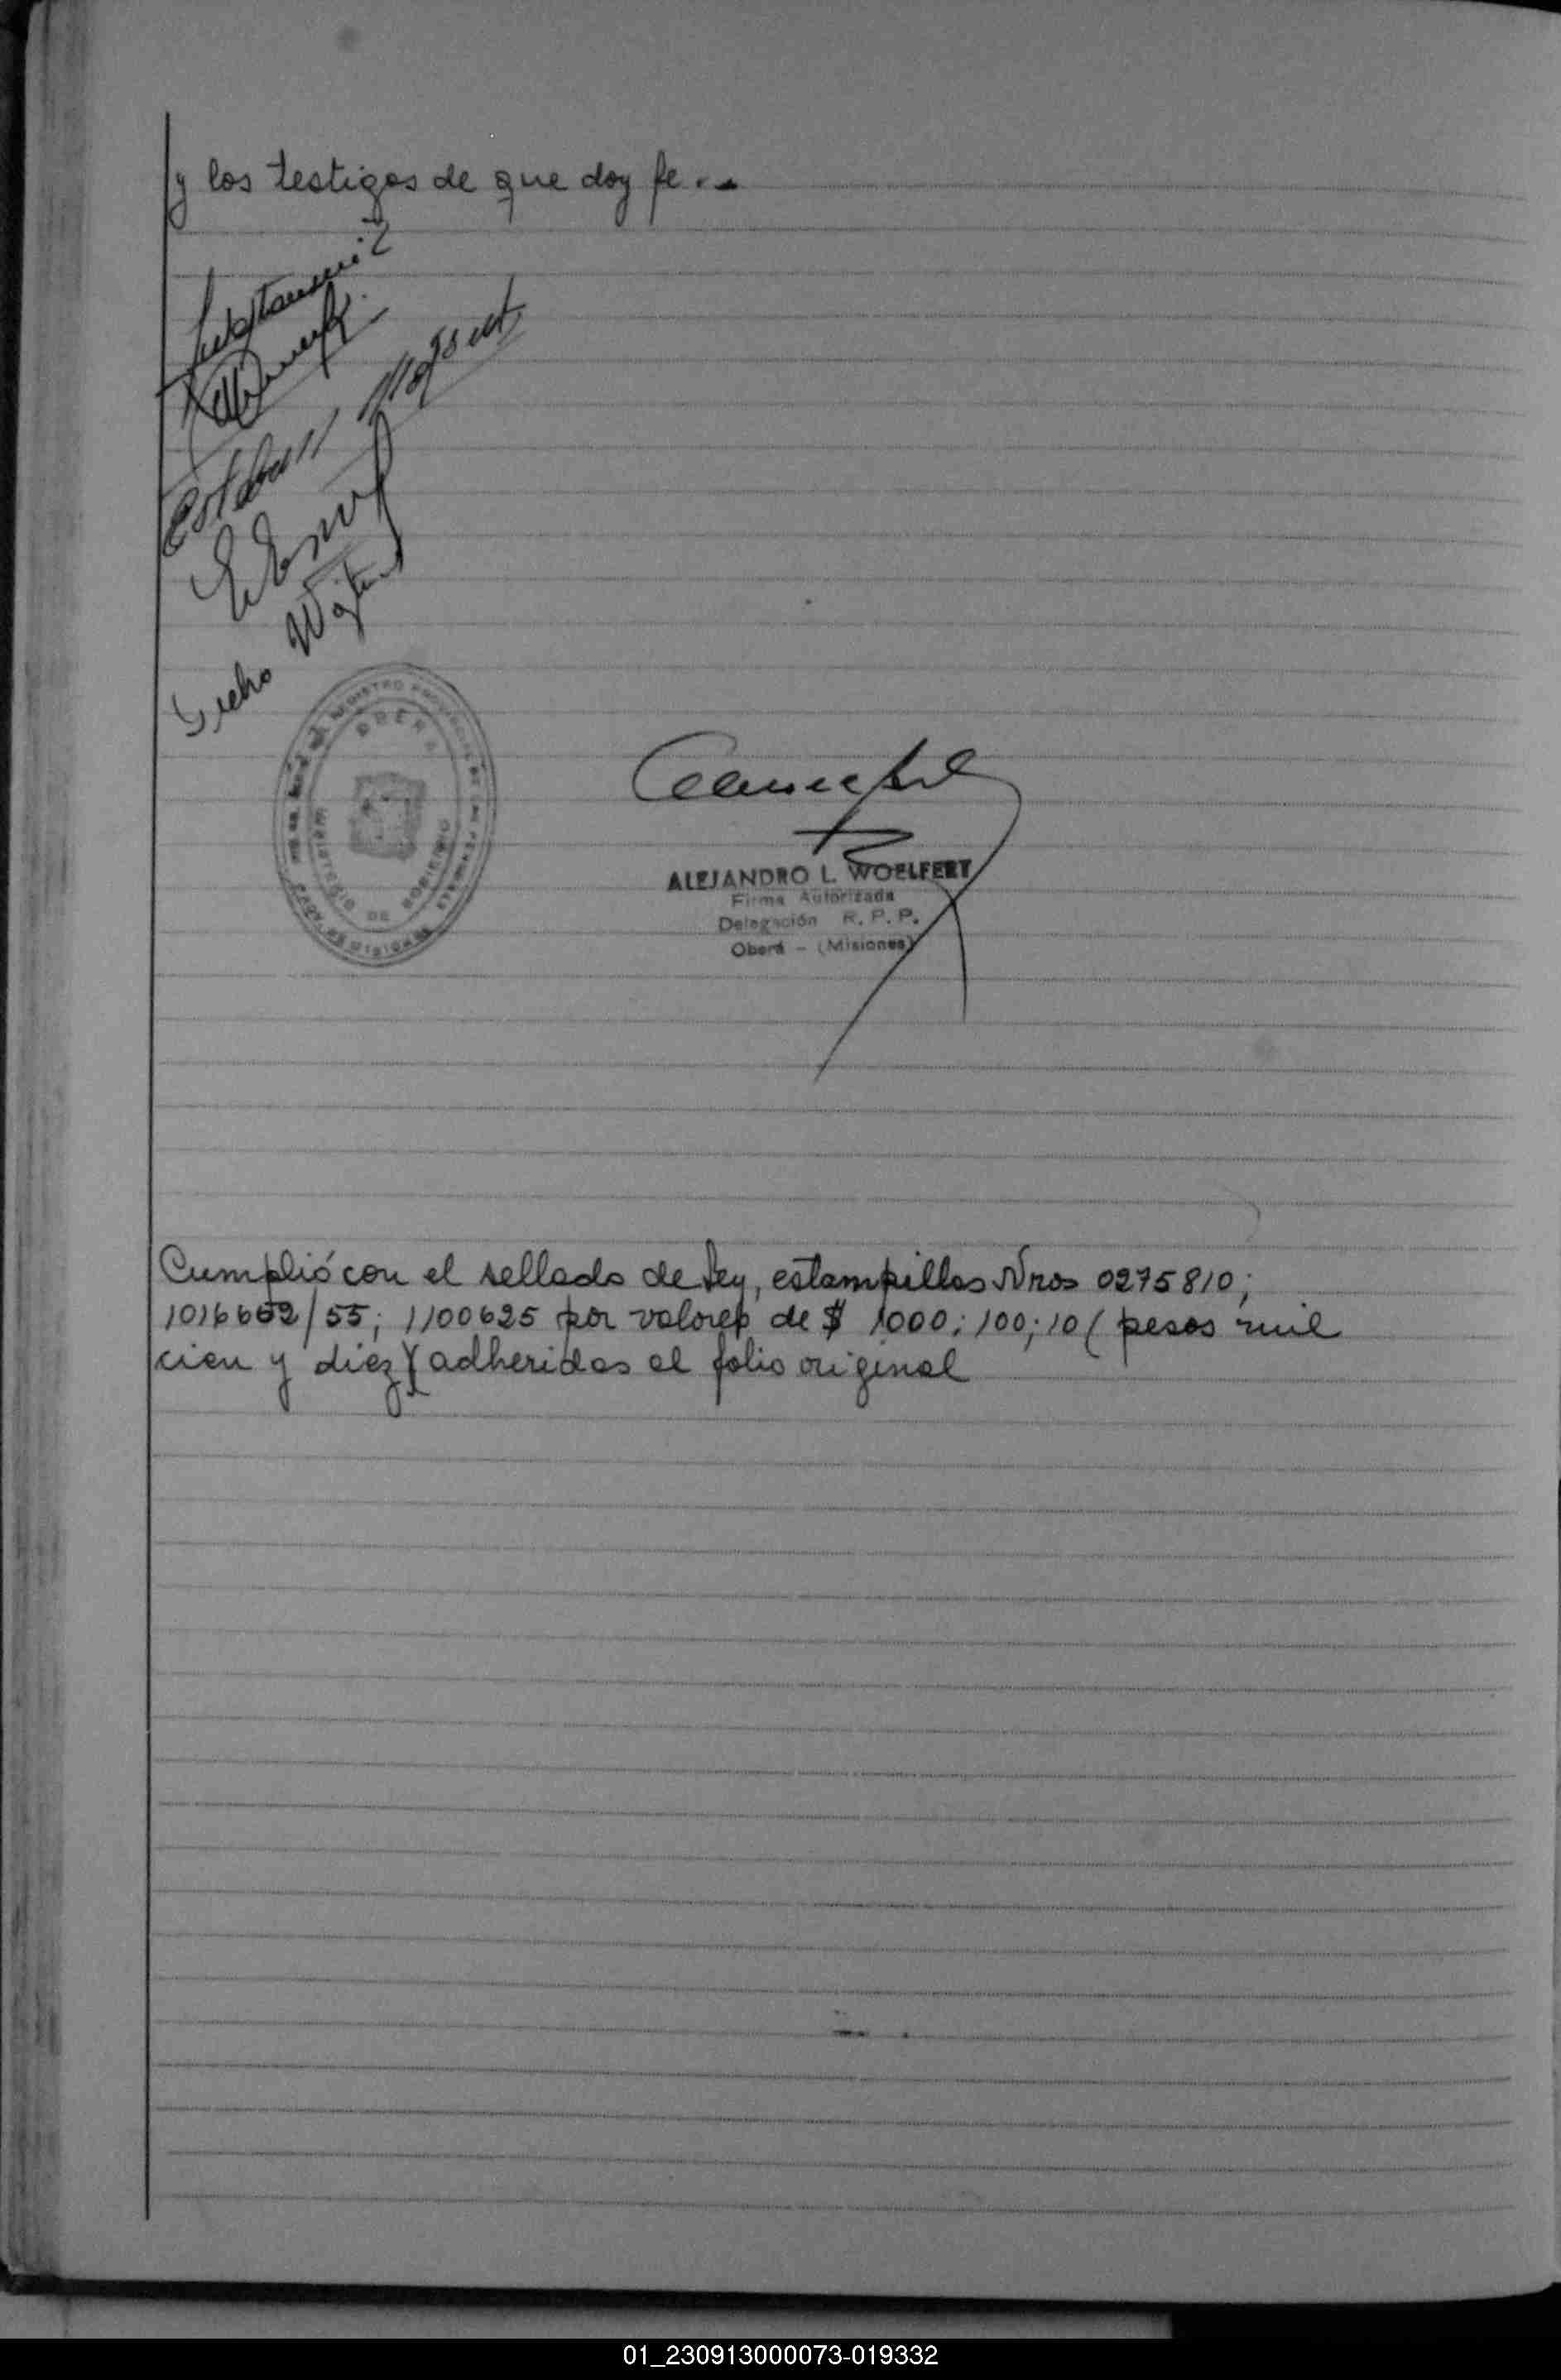 y los testigos de que doy fe.-
Esteban
OBERA
MINISTERIO DE GOBIERNO
ALEJANDRO L. WOELFERT
Firma Autorizada
Delegación R. P. P.
Oberá - (Misiones)
Cumplió con el sellado de Ley, estampillas Nros 0275810;
1016652/55; 1100625 por valores de $ 1000; 100; 10 (pesos mil
cien y diez) adheridas al folio original
01_230913000073-019332